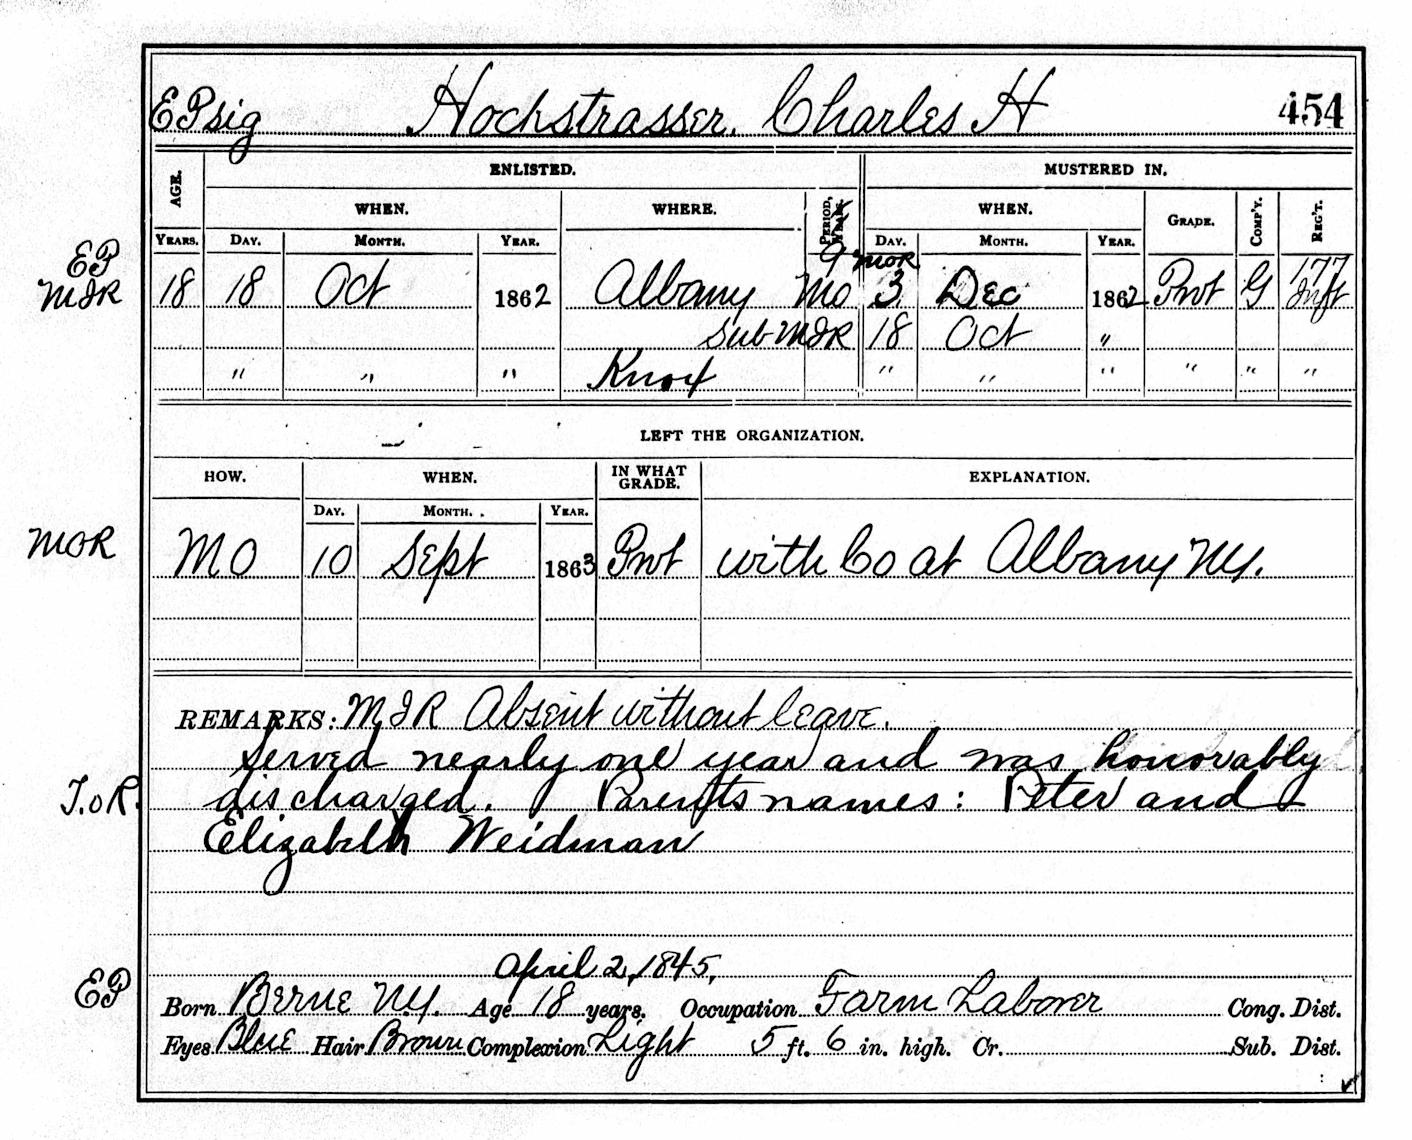 EPsig Hochstrasser, Charles H 454
AGE. ENLISTED. MUSTERED IN.
WHEN. WHERE. PERIOD, YEARS. WHEN. GRADE. COMP'Y. REG'T.
YEARS. DAY. MONTH. YEAR. DAY. MONTH. YEAR.
EP 9 MOR 177
MIR 18 18 Oct 1862 Albany Mo 3 Dec 1862 Pvt G Inft
Sub MIR 18 Oct "
" " " Knox " " " " " "
LEFT THE ORGANIZATION.
HOW. WHEN. IN WHAT GRADE. EXPLANATION.
DAY. MONTH. YEAR.
MOR MO 10 Sept 1863 Pvt with Co at Albany NY.
REMARKS: MIR Absent without leave.
Served nearly one year and was honorably
T.oR. discharged. Parents names: Peter and
Elizabeth Weidman
April 2, 1845,
EP Born Berne N.Y. Age 18 years. Occupation Farm Laborer Cong. Dist.
Eyes Blue Hair Brown Complexion Light 5 ft. 6 in. high. Cr. Sub. Dist.